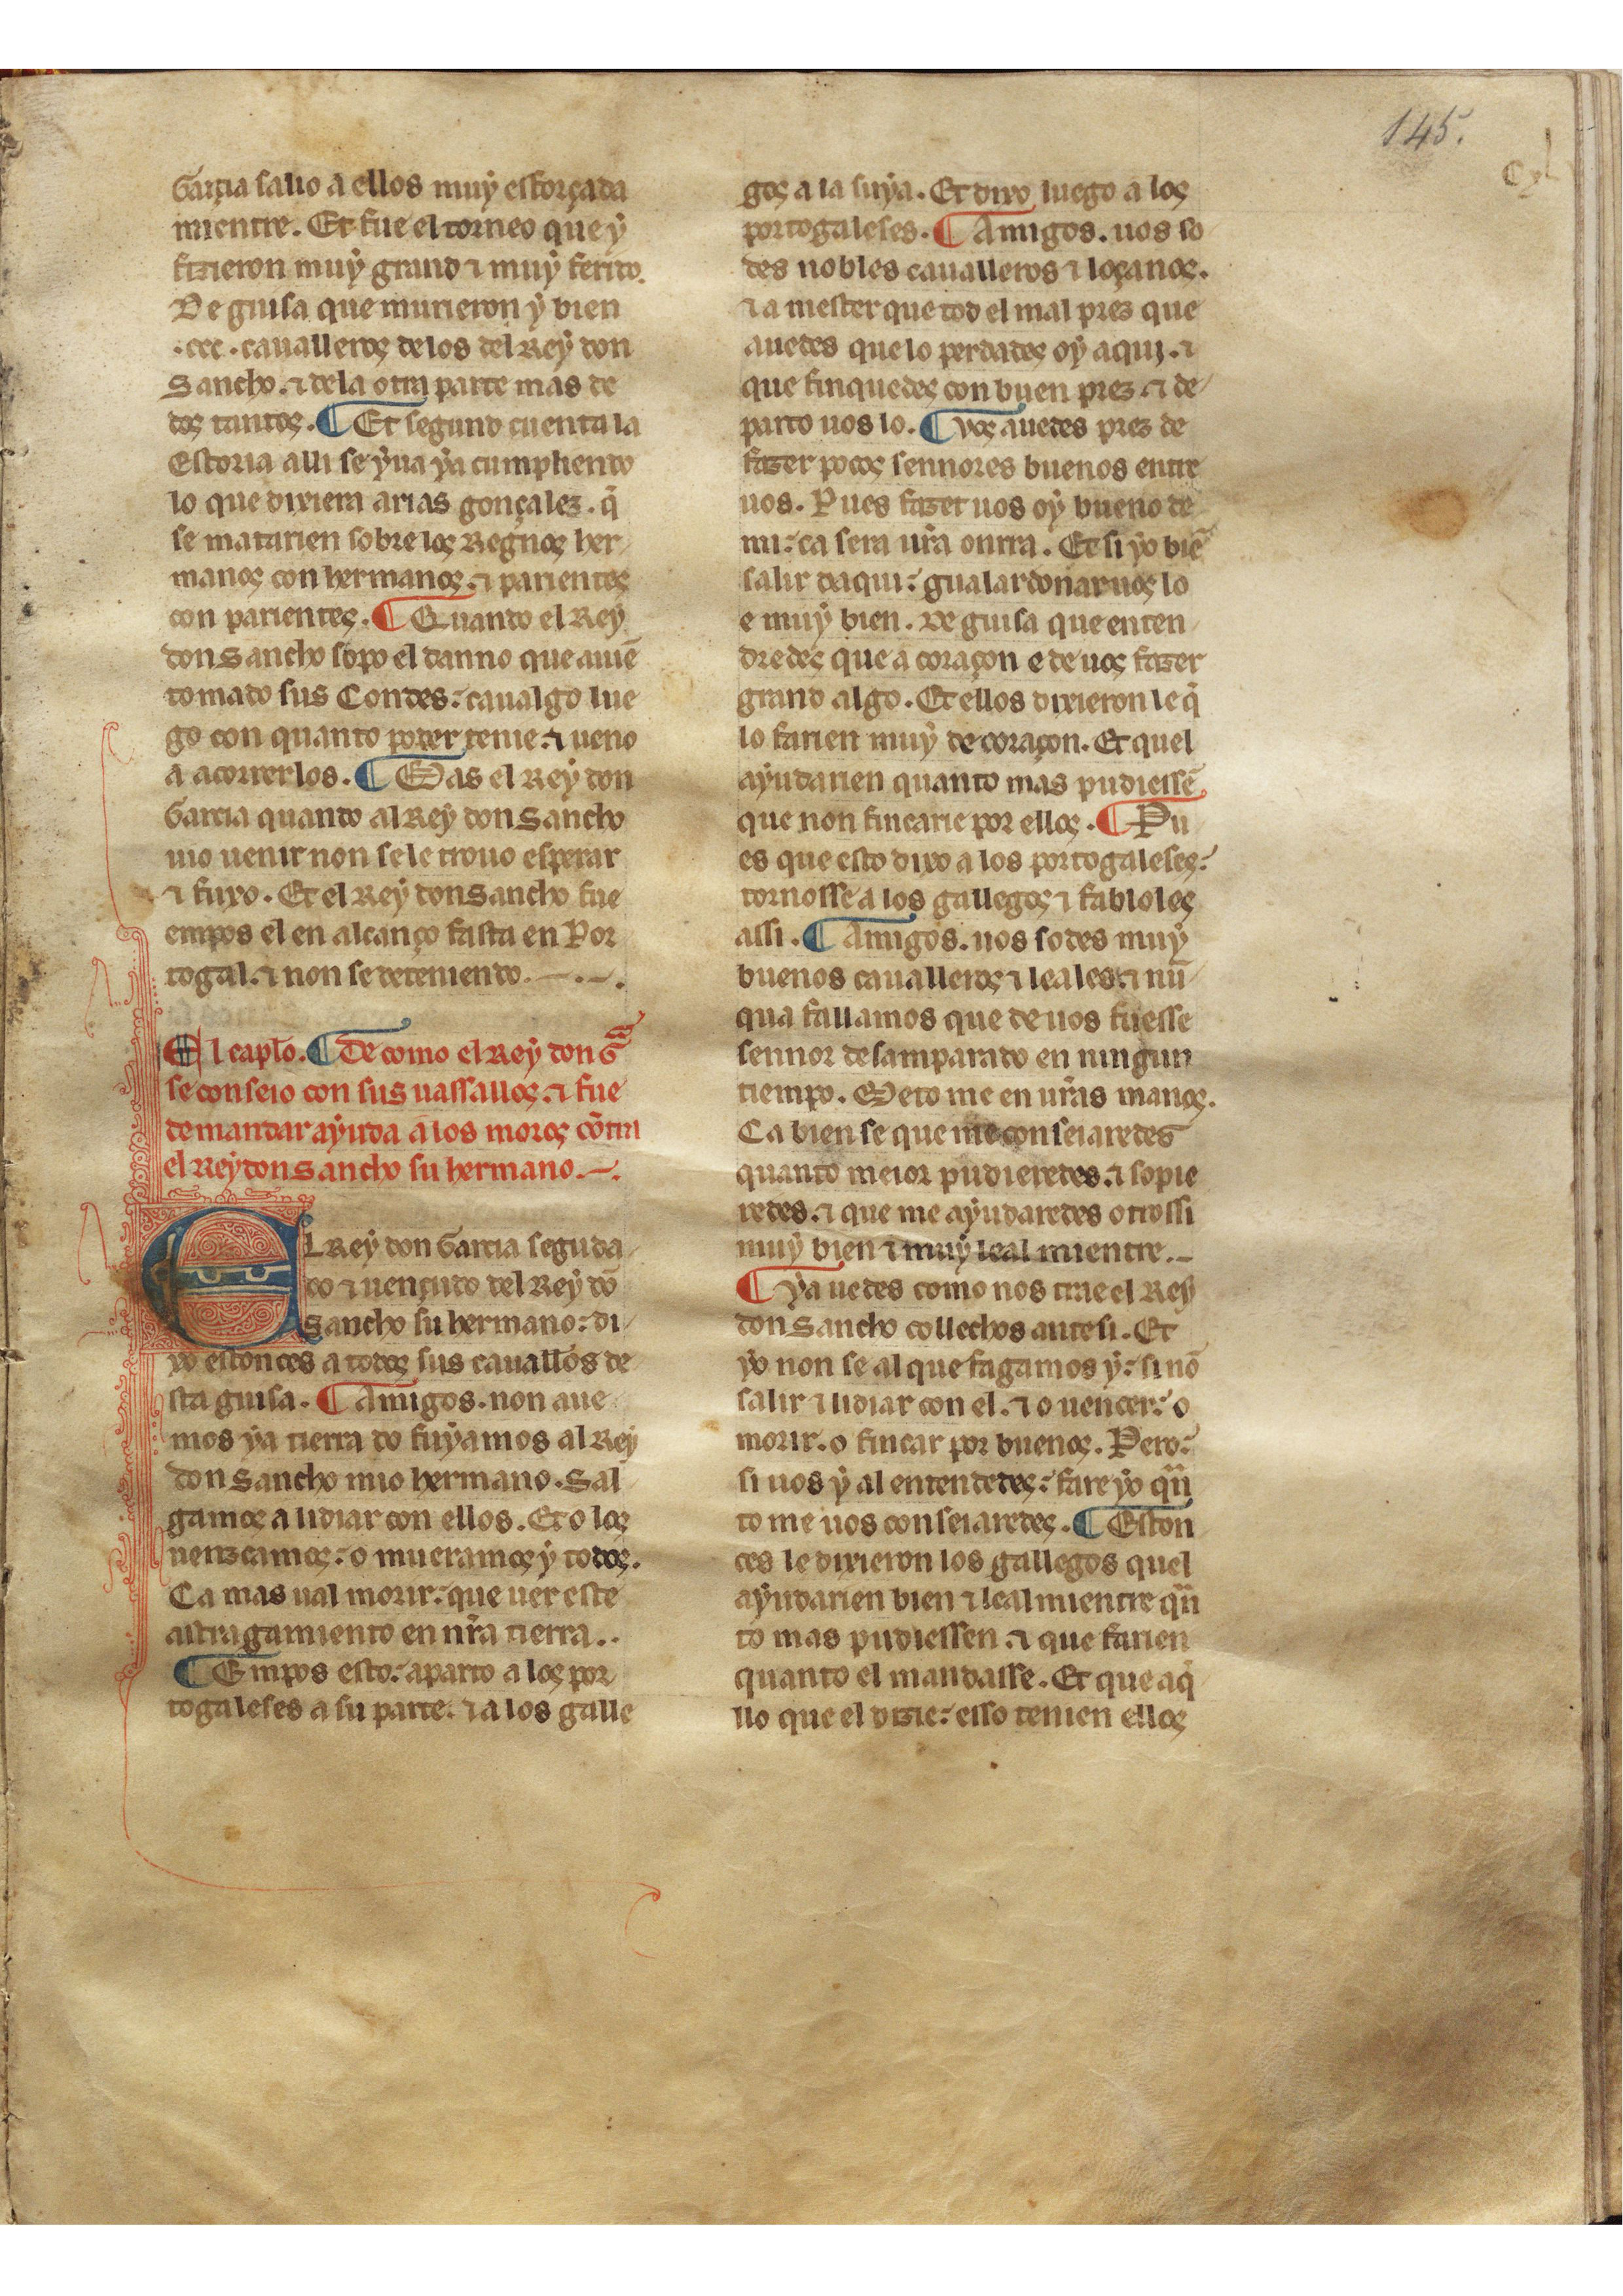 145.
Garçia salio a ellos muẏ esforçada
mientre. Et fue el torneo que ẏ
fizieron muẏ grand ⁊ muẏ ferido.
De guisa que murieron ẏ bien
.ccc. caualleros delos del Reẏ don
Sancho. ⁊ dela otra parte mas de
dos tantos. ¶ Et segund cuenta la
Estoria alli se ẏua ẏa cumpliendo
lo que dixiera arias gonçalez. q̃
se matarien sobre los Regnos her
manos con hermanos. ⁊ parientes
con parientes. ¶ Quando el Reẏ
don Sancho sopo el danno que auiẽ
tomado sus Condes: caualgo lue
go con quanto poder tenie. ⁊ ueno
a acorrerlos. ¶ Mas el Reẏ don
Garcia quando al Reẏ don Sancho
uio uenir non sele trouo esperar
⁊ fuxo. Et el Reẏ don Sancho fue
empos el en alcanço fasta en Por
togal. ⁊ non se deteniendo.
El capl̃o. ¶ De como el Reẏ don G.ª
se conseio con sus uassallos. ⁊ fue
demandar aẏuda a los moros cõtra
el Reẏ don Sancho su hermano.
El Reẏ don Garcia seguda
do ⁊ uençudo del Reẏ dõ
Sancho su hermano: di
xo estonces a todos sus cauall̃os de
sta guisa. ¶ Amigos. non aue
mos ẏa tierra do fuẏamos al Reẏ
don Sancho mio hermano. Sal
gamos a lidiar con ellos. Et o los
uenzcamos: o mueramos ẏ todos.
Ca mas ual morir: que uer este
astragamiento en nr̃a tierra..
¶ Empos esto: aparto a los por
togaleses a su parte. ⁊ a los galle
gos a la suẏa. Et dixo luego a los
portogaleses. ¶ Amigos. uos so
des nobles caualleros ⁊ loçanos.
⁊ a mester que tod el mal prez que
auedes que lo perdades oẏ aqui. ⁊
que finquedes con buen prez. ⁊ de
parto uos lo. ¶ Vos auedes prez de
fazer pocos sennores buenos entre
uos. Pues fazet uos oẏ bueno de
mi: ca sera ur̃a onrra. Et si ẏo biẽ
salir daqui: gualardonar uos lo
e muẏ bien. De guisa que enten
dredes que a coraçon e de uos fazer
grand algo. Et ellos dixieron le q̃
lo farien muẏ de coraçon. Et quel
aẏudarien quanto mas pudiessẽ
que non fincarie por ellos. ¶ Pu
es que esto dixo a los portogaleses:
tornosse a los gallegos ⁊ fabloles
assi. ¶ Amigos. uos sodes muẏ
buenos caualleros ⁊ leales. ⁊ nũ
qua fallamos que de uos fuesse
sennor desamparado en ningun
tiempo. Meto me en ur̃as manos.
Ca bien se que me conseiaredes
quanto meior pudieredes. ⁊ sopie
redes. ⁊ que me aẏudaredes otrossi
muẏ bien ⁊ muẏ leal mientre.
¶ Ẏa uedes como nos trae el Reẏ
don Sancho collechos ante si. Et
ẏo non se al que fagamos ẏ: si nõ
salir ⁊ lidiar con el. ⁊ o uencer: o
morir. o fincar por buenos. Pero:
si uos ẏ al entendedes: fare ẏo quã
to me uos conseiaredes. ¶ Eston
ces le dixieron los gallegos quel
aẏudarien bien ⁊ leal mientre quã
to mas pudiessen. ⁊ que farien
quanto el mandasse. Et que aq̃
llo que el dizie: esso tenien ellos